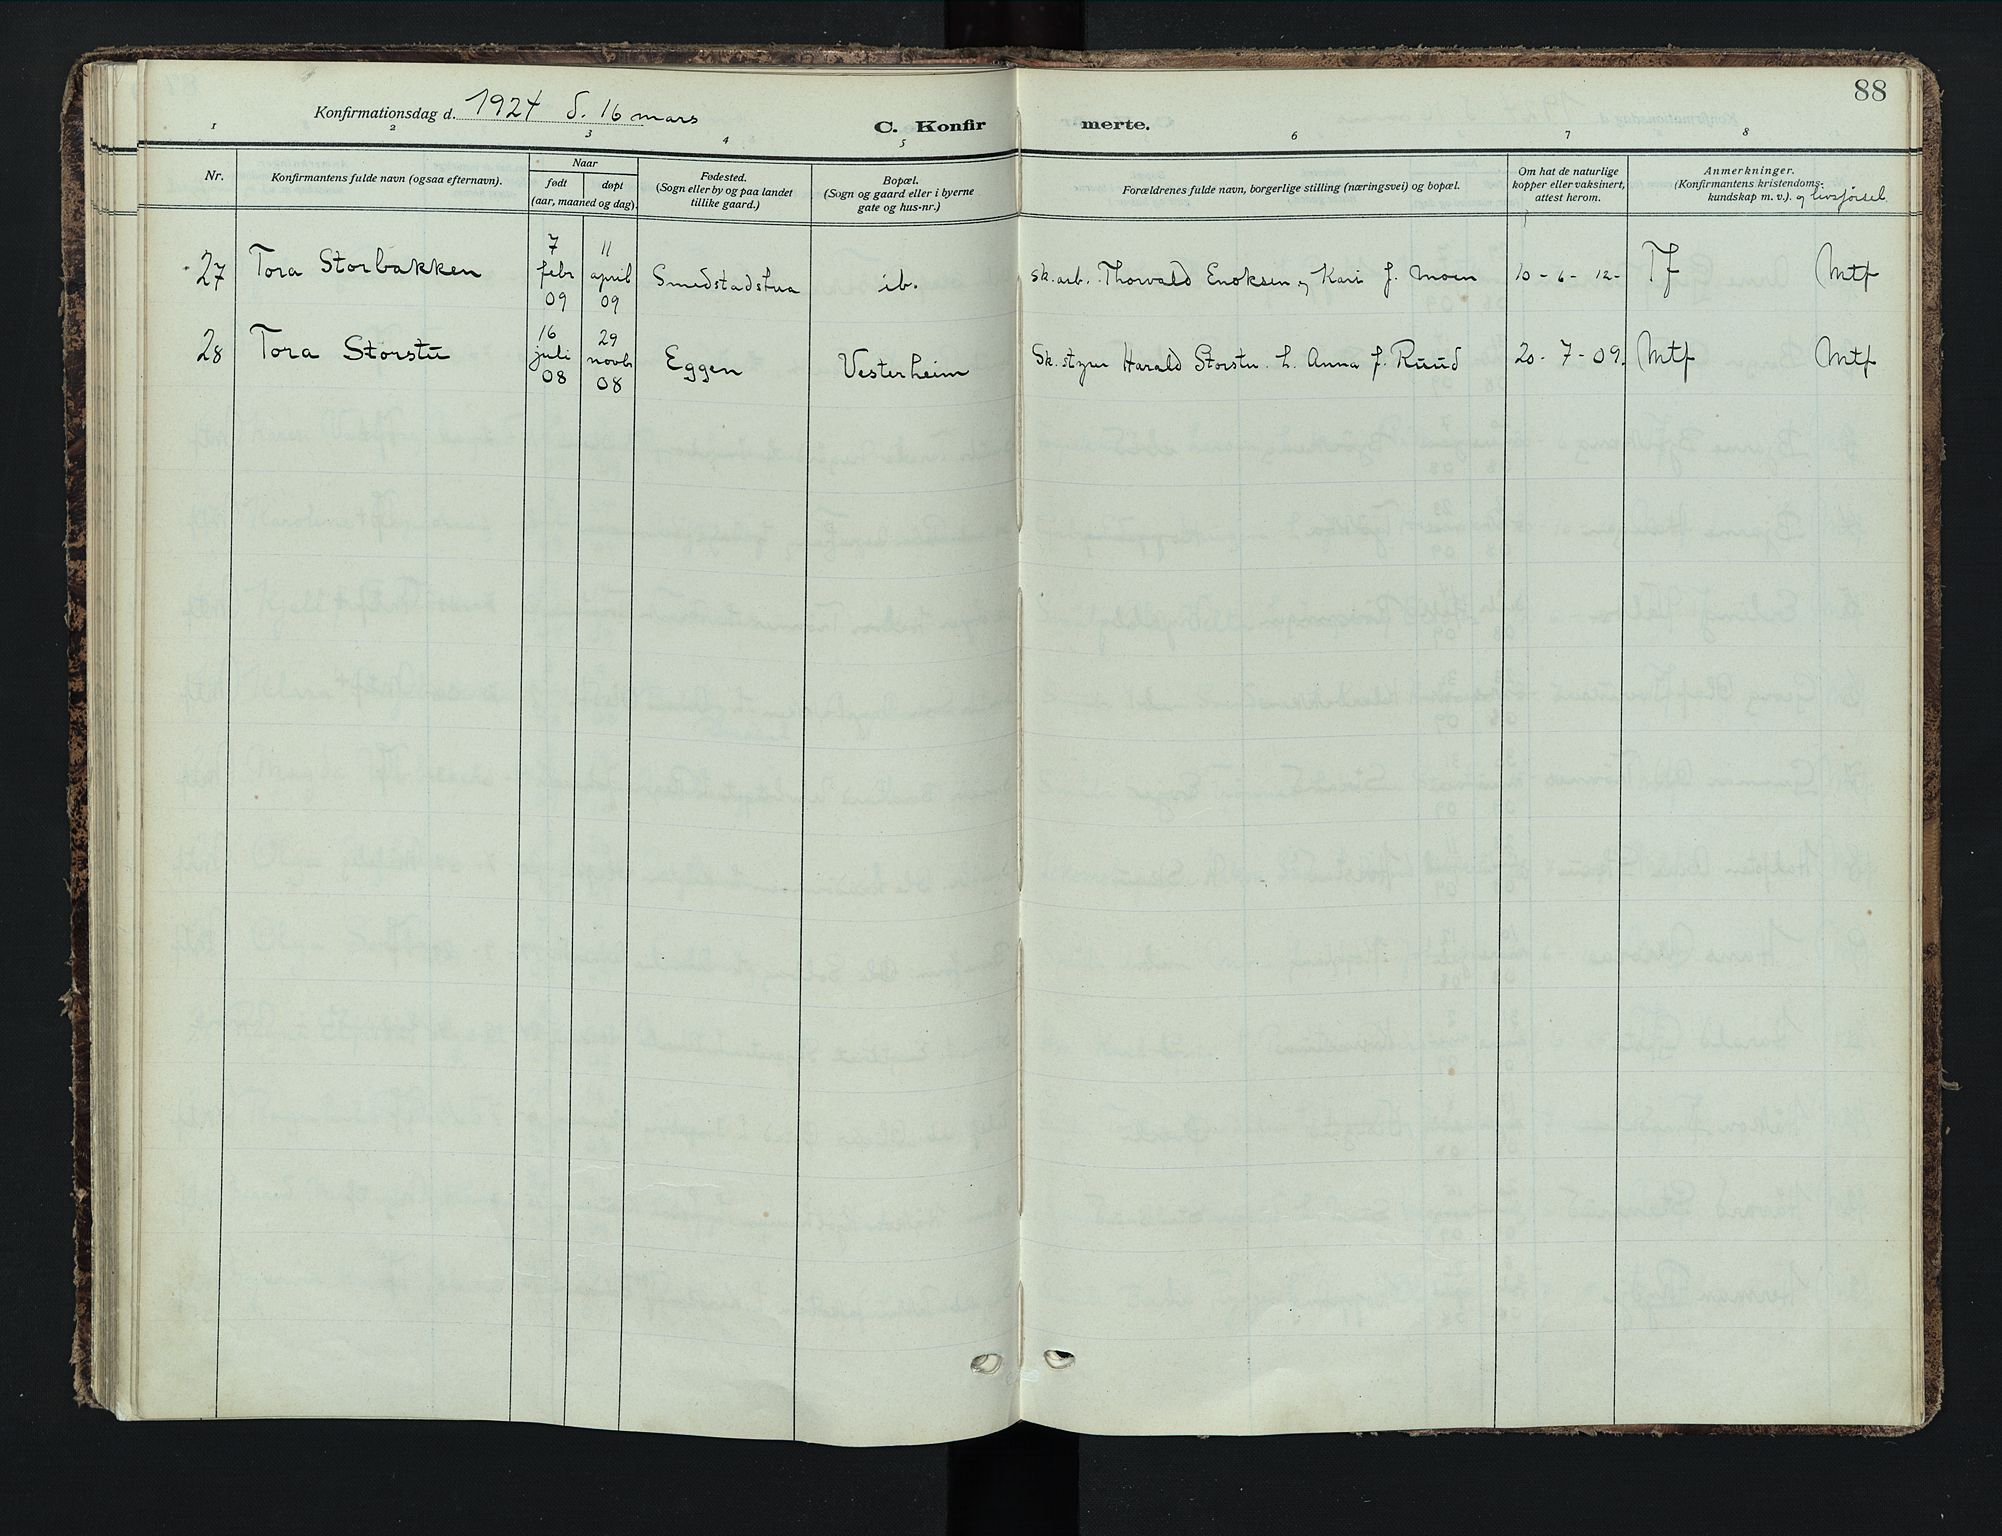 88
Konfirmationsdag d. 1924 d. 16 mars
C. Konfirmerte.
1 2 3 4 5 6 7 8
Nr.
Konfirmantens fulde navn (ogsaa efternavn).
Naar
født
døpt
(aar, maaned og dag).
Fødested.
(Sogn eller by og paa landet
tillike gaard.)
Bopæl.
(Sogn og gaard eller i byerne
gate og hus-nr.)
Forældrenes fulde navn, borgerlige stilling (næringsvei) og bopæl.
Om hat de naturlige
kopper eller vaksinert,
attest herom.
Anmerkninger.
(Konfirmantens kristendoms-
kundskap m. v.). og livsførsel
27 Tora Storbakken 7 febr 09 11 april 09 Smedstadstua ib. Sk. arb. Thorvald Enoksen og Kari f. Moen 10-6-12- Tf Mtf
28 Tora Storstu 16 juli 08 29 novbr 08 Eggen Vesterheim Sk. styrer Harald Storstu h. Anna f. Ruud 20-7-09. Mtf Mtf